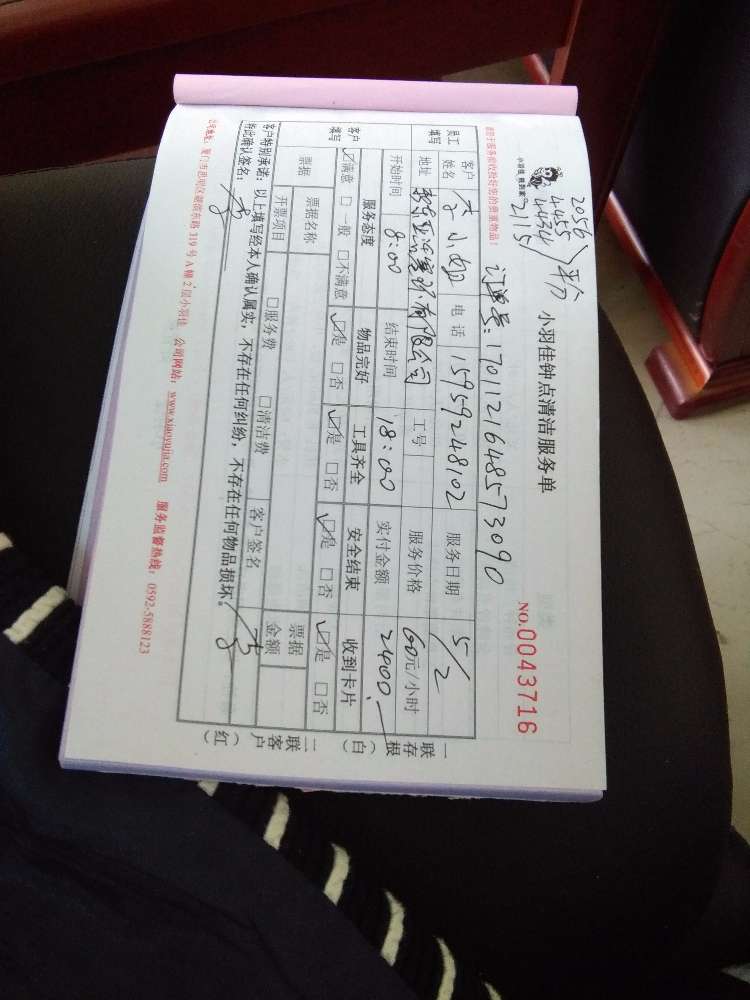 小羽佳钟点清洁服务单
小羽佳 机到家
2056
4455
4434
2115
平分
订单号:1701121648573090
NO.0043716
员工填写
客户姓名 李小姐 电话 15959248102 服务日期 5/2
地址 有限公司 工号 服务价格 60元/小时
开始时间 8:00 结束时间 18:00 实付金额 2400.
客户填写
服务态度 物品完好 工具齐全 安全结束 收到卡片
☑满意 □一般 □不满意 ☑是 □否 ☑是 □否 ☑是 □否 ☑是 □否
票据 票据名称 票据金额
开票项目 □服务费 □清洁费 客户签名
客户特别承诺:以上填写经本人确认属实,不存在任何纠纷,不存在任何物品损坏。
特此确认签名:
一联存根(白) 二联客户(红)
公司地址:厦门市思明区湖滨东路319号A幢2层小羽佳 公司网站:www.xiaoyujia.com 服务监督热线:0592-5888123